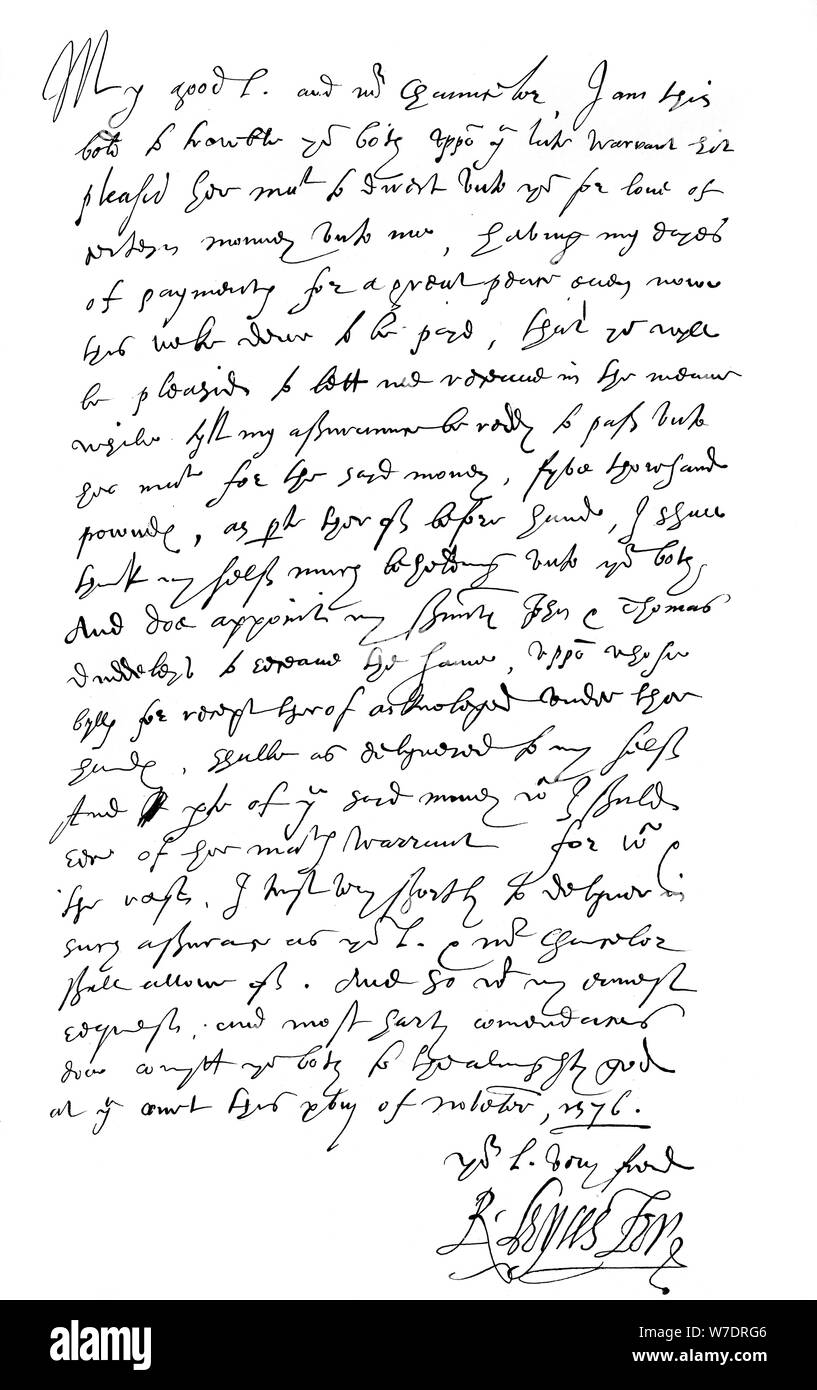 My good L. and mr Chauncelor, I am this
bold to trowble yor both uppon ye late warrant hit
pleased her matie to dyrect unto yow for lone of
certeyn monney unto me, having my dayes
of payments for a great peace even nowe
this weke dewe to be payd, that yow wyll
be pleasid to lett me receave in the meane
while tyll my assuraunce be reddy to pass unto
her matie for the sayd money, fyve thowsand
pownds, as pte therof before hand, I shall
think my self much beholding unto yow both,
And doe appoint my servants John & Thomas
Duddeleys to receave the same, uppon whose
bylls for receipt therof acknoleged under their
hands, shalbe as delyvered to my self
And pte of ye sayd money wch I shuld
rec of her maties warrant for wch &
the rest, I trust very shortly to delyver in
such assurance as yor L. & mr Chancelor
shall allow of. And so wt my ernest
request, and most harty comendacions
doe comytt yow both to the almighty god
at ye court this xvjth of november, 1576.
yor L. very frend
R. Leycester
alamy
Image ID: W7DRG6
www.alamy.com